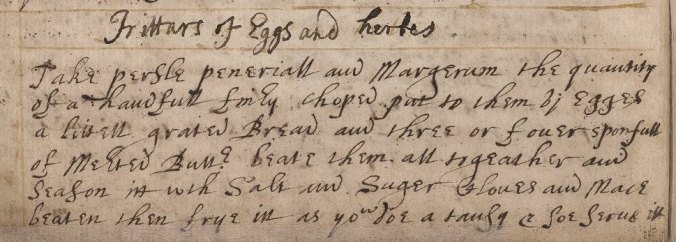 Fritturs of Eggs and herbes
Take persle peneriall and Margerum the quantity
of a handfull finly choped put to them vj Egges
a littell grated Bread and three or fouer sponfull
of Melted Butte beate them all togeather and
Season itt wth Salt and Suger Cloves and Mace
beaten then frye itt as yow doe a tansy & soe serve itt